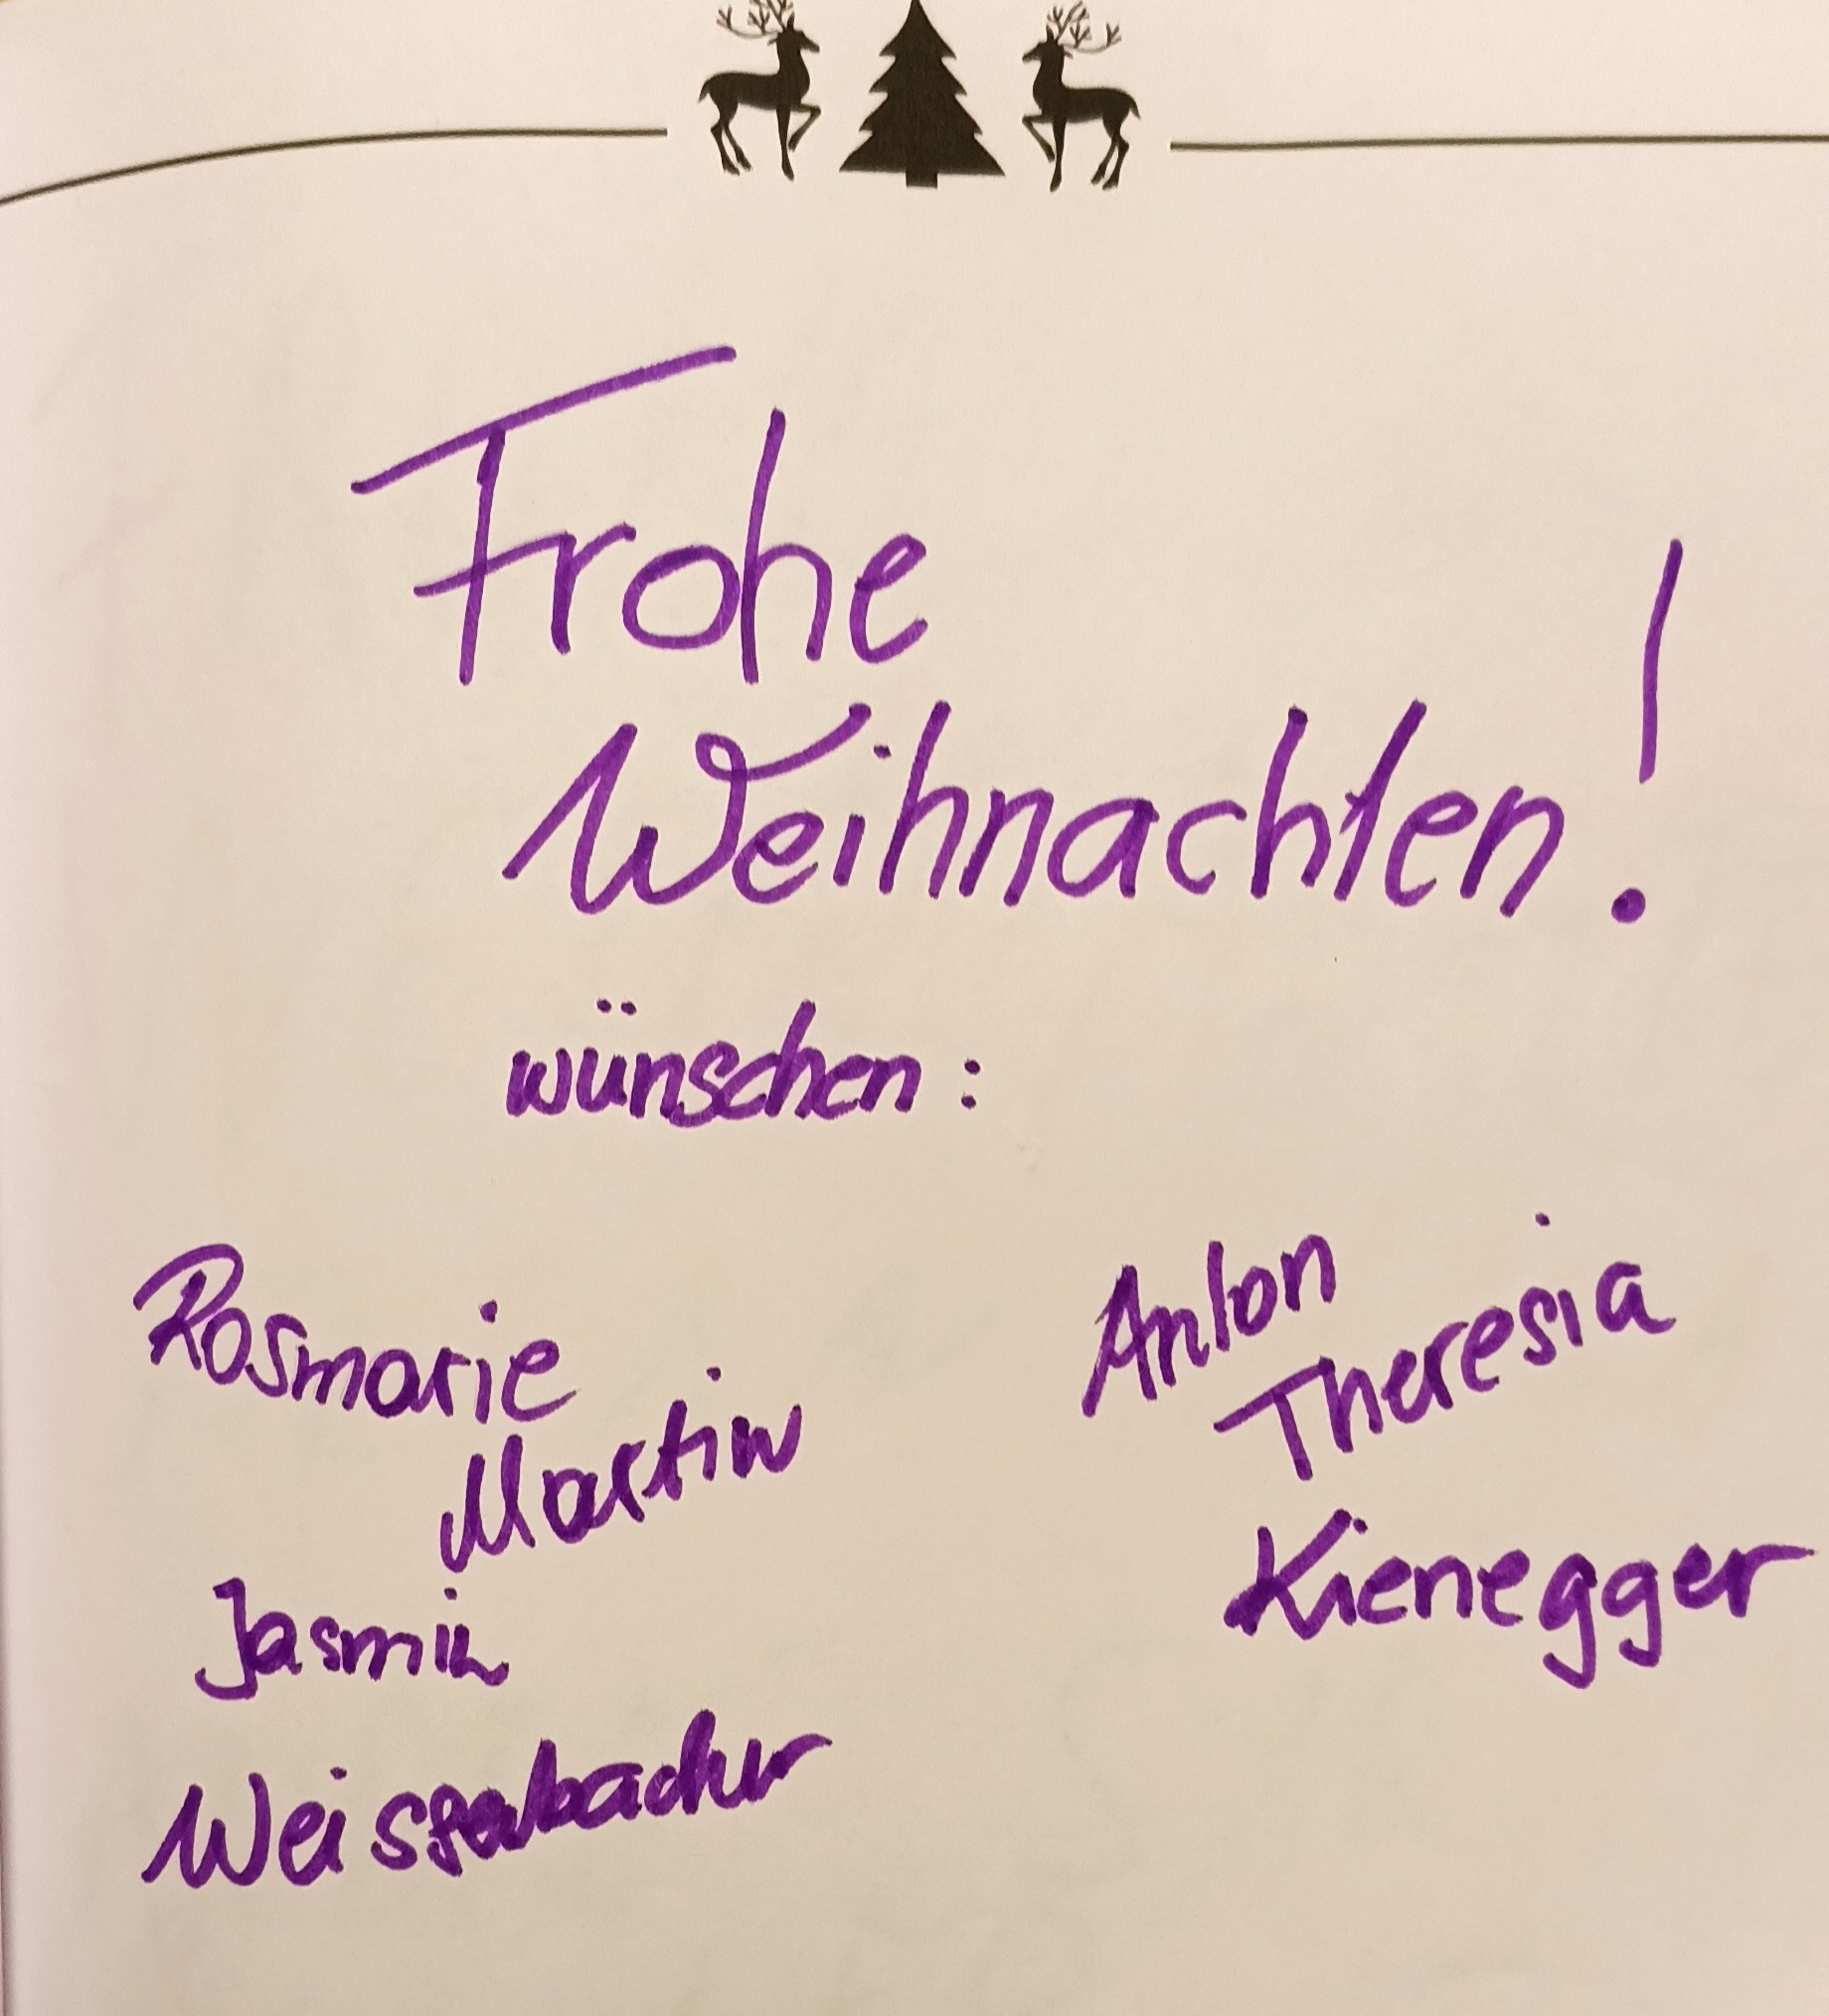 Frohe
Weihnachten!
wünschen:
Rosmarie
Martin
Jasmin
Weissenbacher
Anton
Theresia
Kienegger